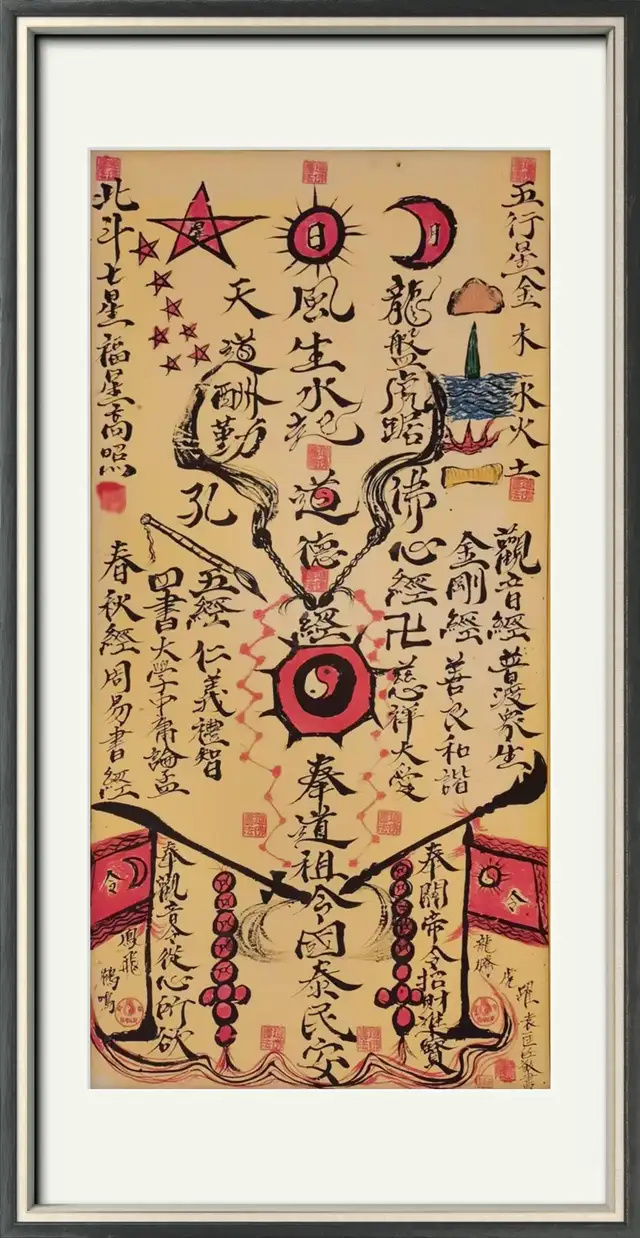 五行星金木水火土
月
龍盤虎踞
日
風生水起
星
天道酬勤
北斗七星福星高照
觀音經普渡眾生
金剛經善良和諧
佛心經卍慈祥大愛
道德經
孔
五經仁義禮智
四書大學中庸論孟
春秋經周易書經
奉道祖令國泰民安
令
龍騰虎躍
奉關帝令招財進寶
奉觀音令從心所欲
令
鳳飛鶴鳴